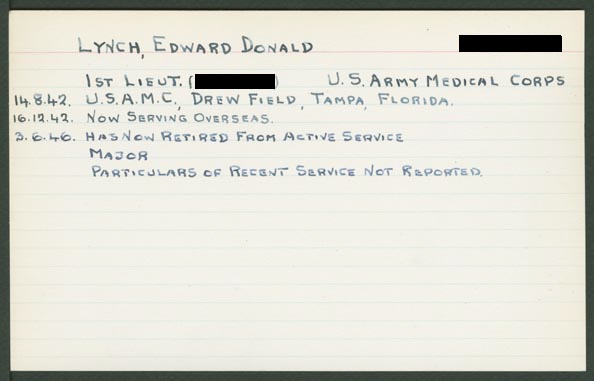 LYNCH, EDWARD DONALD
1ST LIEUT. ( ) U.S. ARMY MEDICAL CORPS
14.8.42. U.S.A.M.C, DREW FIELD, TAMPA, FLORIDA.
16.12.42. NOW SERVING OVERSEAS.
3.6.46. HAS NOW RETIRED FROM ACTIVE SERVICE
MAJOR
PARTICULARS OF RECENT SERVICE NOT REPORTED.